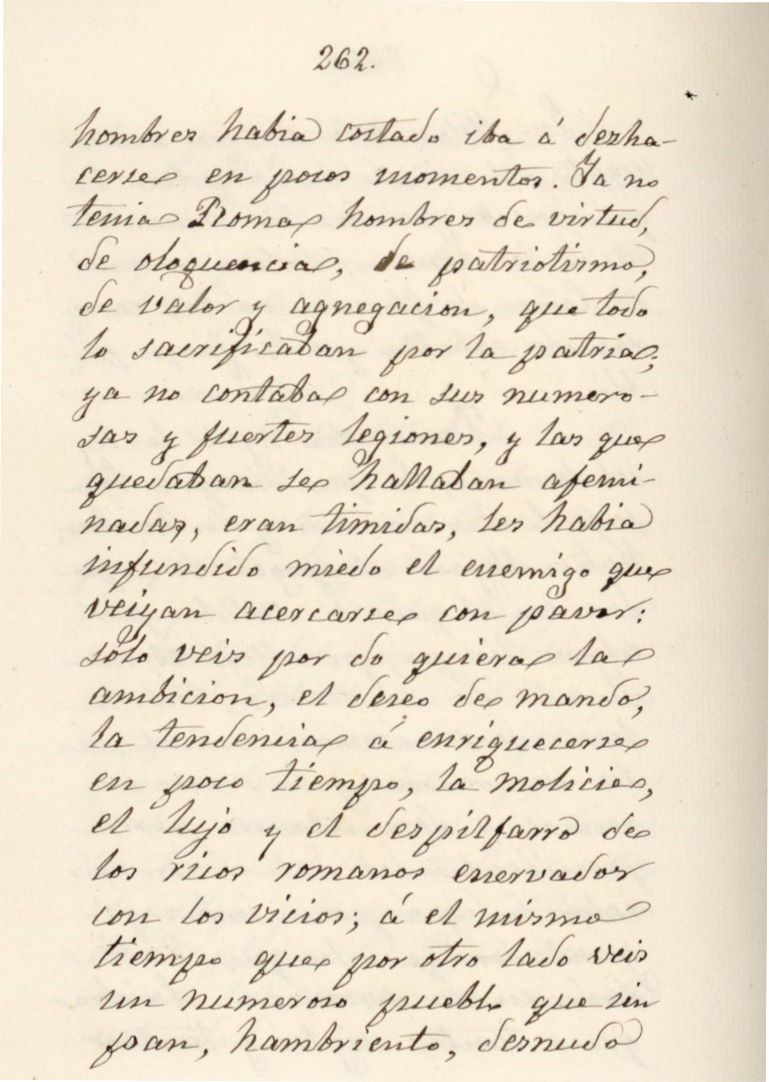 262.
hombres habia costado iba á desha-
cerse en pocos momentos. Ya no
tenia Roma hombres de virtud,
de oloquencia, de patriotismo,
de valor y agnegacion, que todo
lo sacrificaban por la patria;
ya no contaba con sus numero-
sas y fuertes legiones, y las que
quedaban se hallaban afemi-
nadas, eran timidas, les habia
infundido miedo el enemigo que
veiyan acercarse con pavor:
sólo veis por do quiera la
ambicion, el deseo de mando,
la tendencia á enriquecerse
en poco tiempo, la molicie,
el lujo y el despilfarro de
los ricos romanos enervados
con los vicios; á el mismo
tiempo que por otro lado veis
un numeroso pueblo que sin
pan, hambriento, desnudo